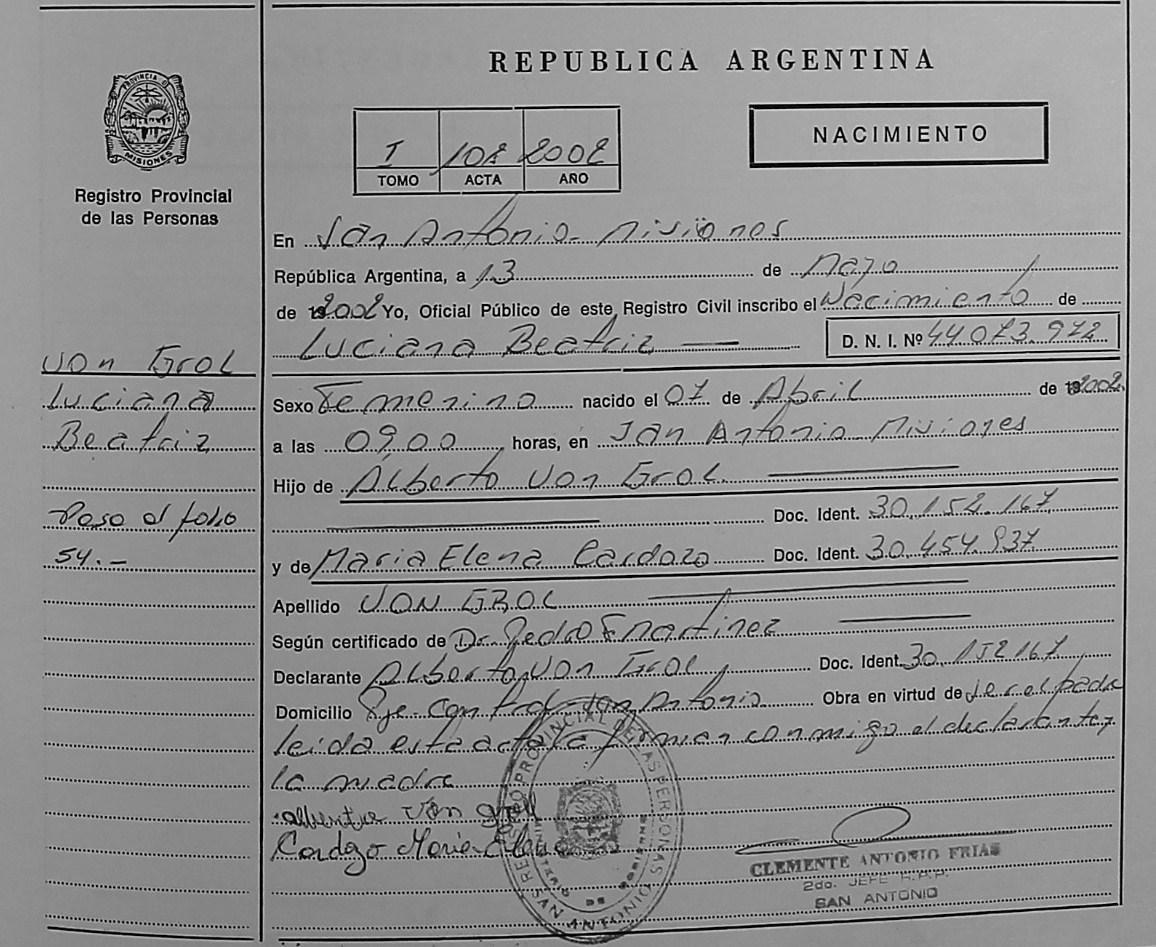 REPUBLICA ARGENTINA
PROVINCIA DE
MISIONES
Registro Provincial
de las Personas
I 108 2002
TOMO ACTA AÑO
NACIMIENTO
En San Antonio - Misiones
República Argentina, a 13 de Mayo
de 2002 Yo, Oficial Público de este Registro Civil inscribo el Nacimiento de
Luciana Beatriz D. N. I. Nº 44.073.972
Von Grol
Luciana
Beatriz
Paso al folio
54.-
Sexo Femenino nacido el 07 de Abril de 2002.
a las 09,00 horas, en San Antonio Misiones
Hijo de Alberto Von Grol
Doc. Ident. 30.152.167
y de Maria Elena Cardozo Doc. Ident. 30.454.937
Apellido VON GROL
Según certificado de Dr. Pedro F Martinez
Declarante Alberto Von Grol Doc. Ident. 30.152.167
Domicilio Pje Control San Antonio Obra en virtud de ser el padre
leida esta acta la firman conmigo el declarante y
la madre
Von
Cardozo Maria Elena
REGISTRO PROVINCIAL DE LAS PERSONAS
SAN ANTONIO
CLEMENTE ANTONIO FRIAS
2do. JEFE R.P.P.
SAN ANTONIO